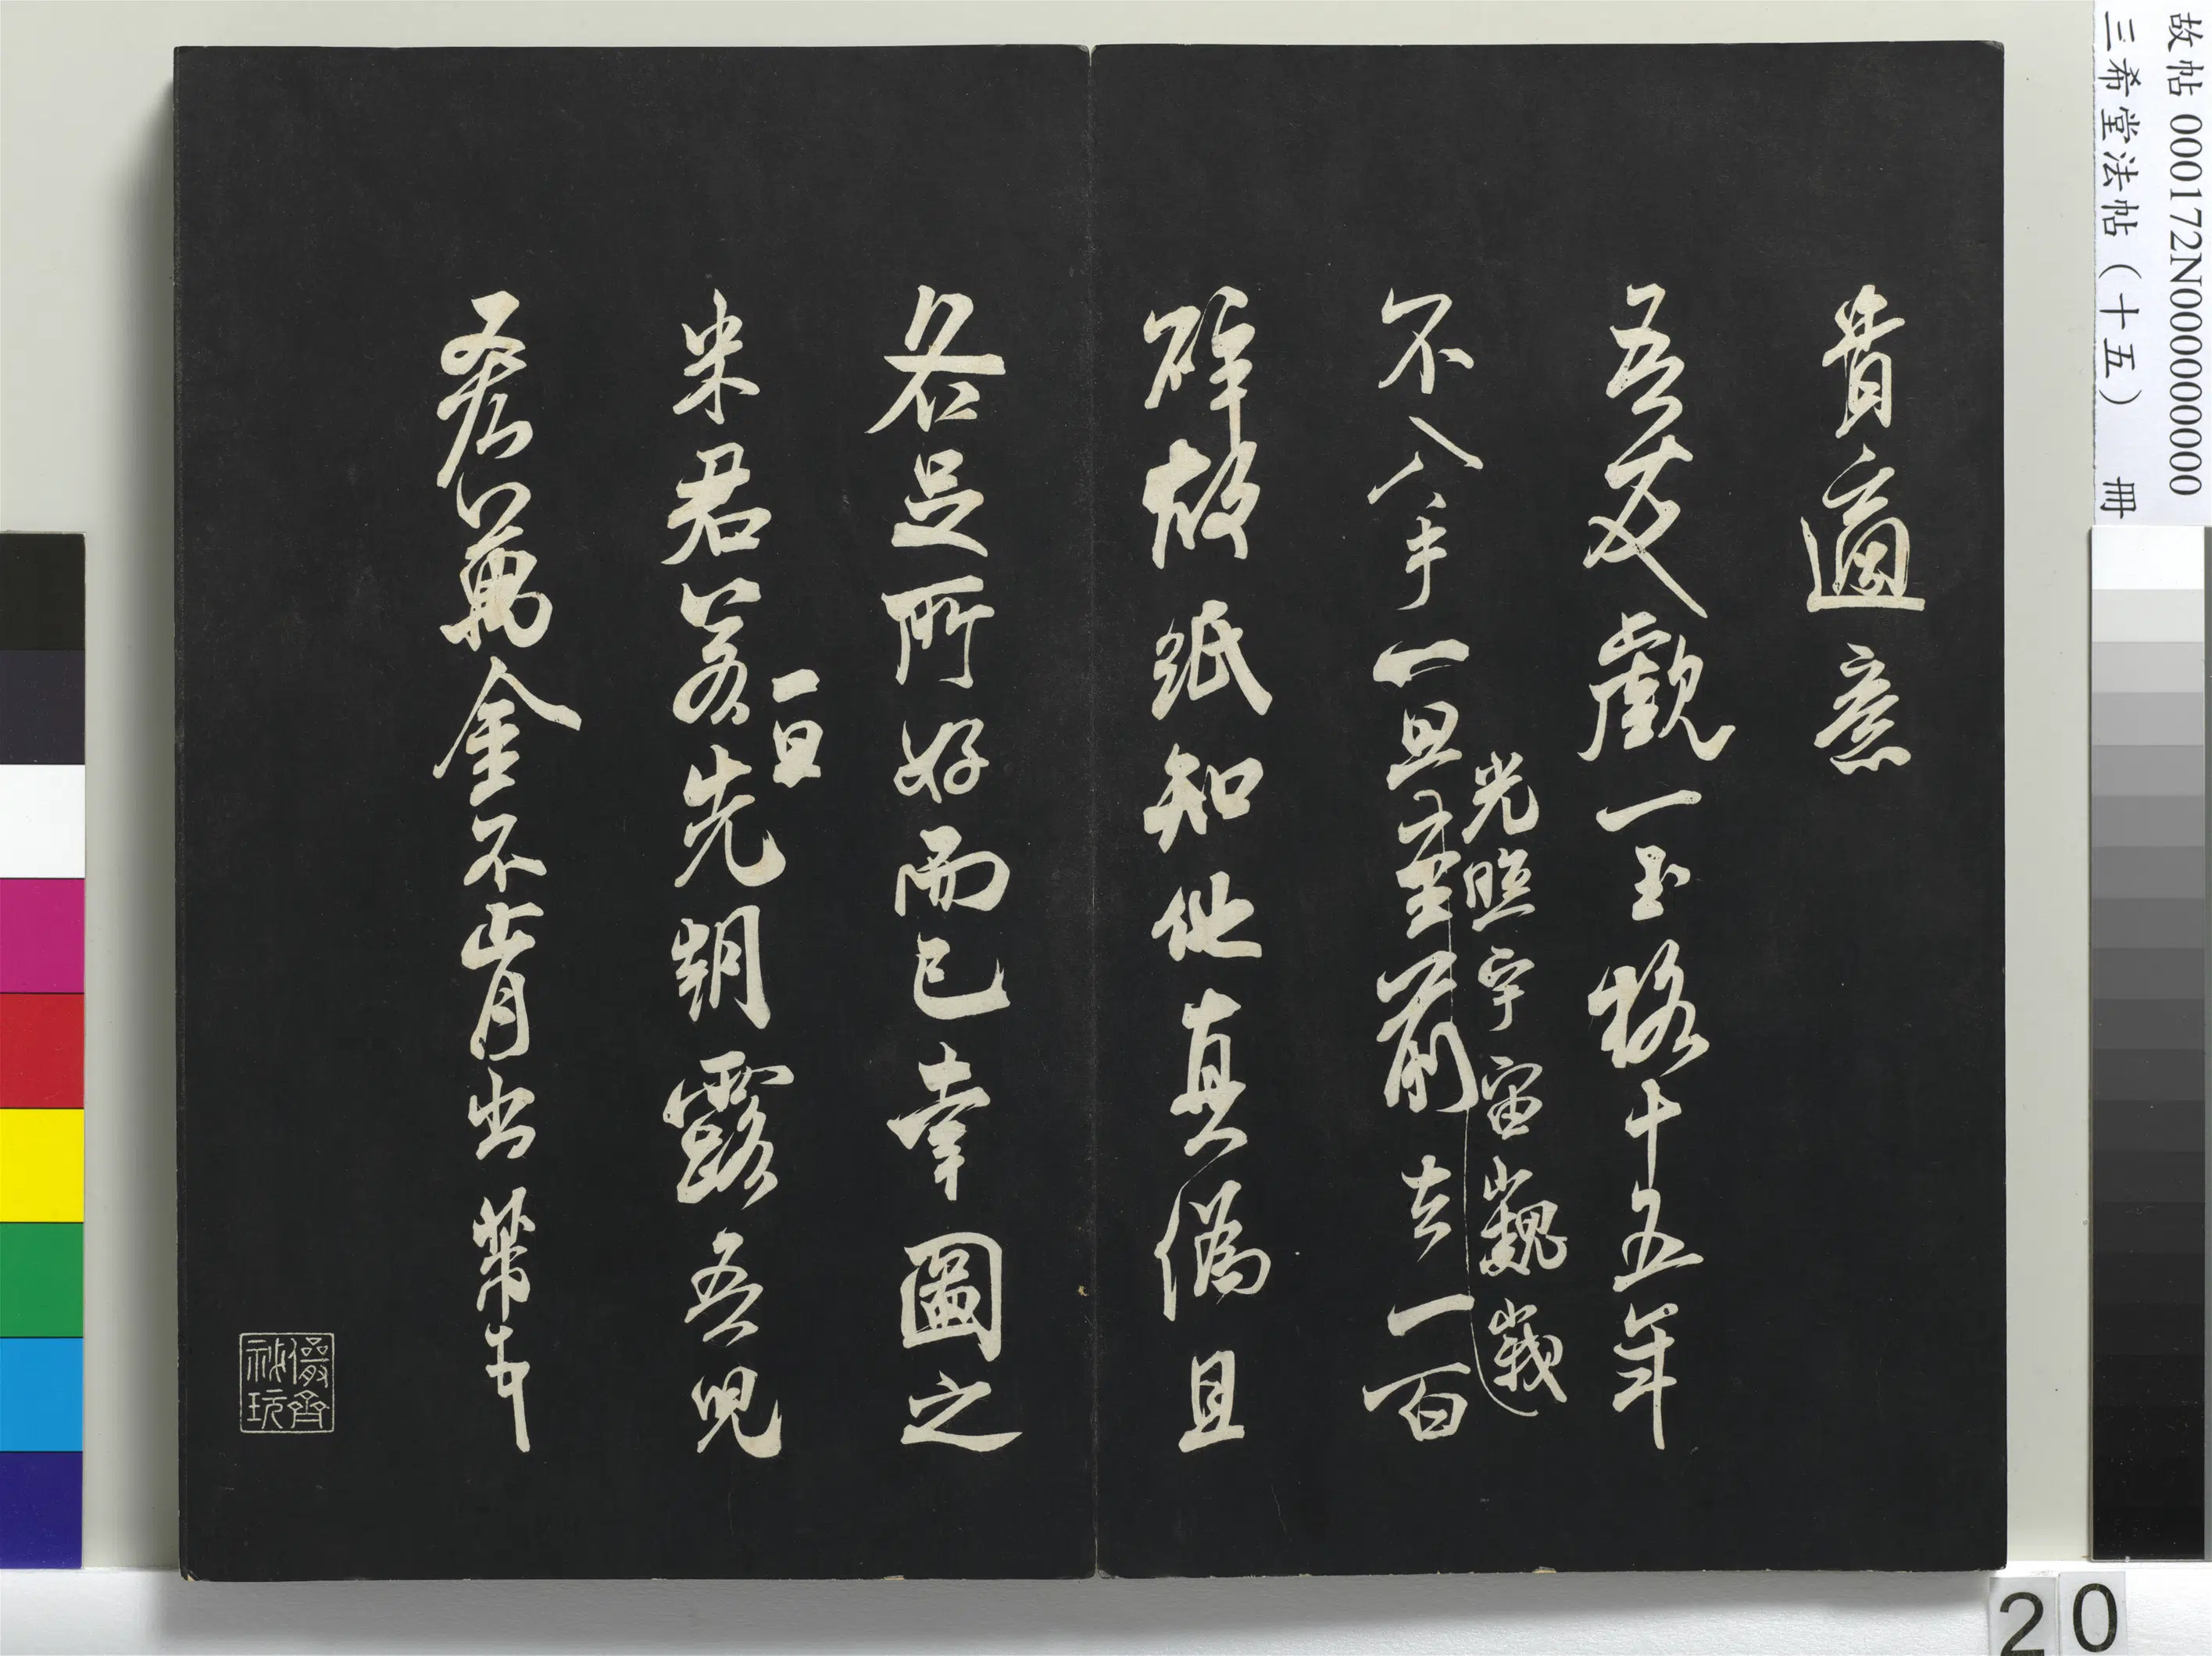 故帖 000172N000000000
三希堂法帖（十五） 冊
貴適意
吾友觀一玉格十五年
光照宇宙巍峨
不入手一旦至前去一百
碎故紙知他真偽且
各足所好而已幸圖之
一旦
米君若先朝露吾兒
吝萬金不肯出芾頓首
儼齋秘玩
20